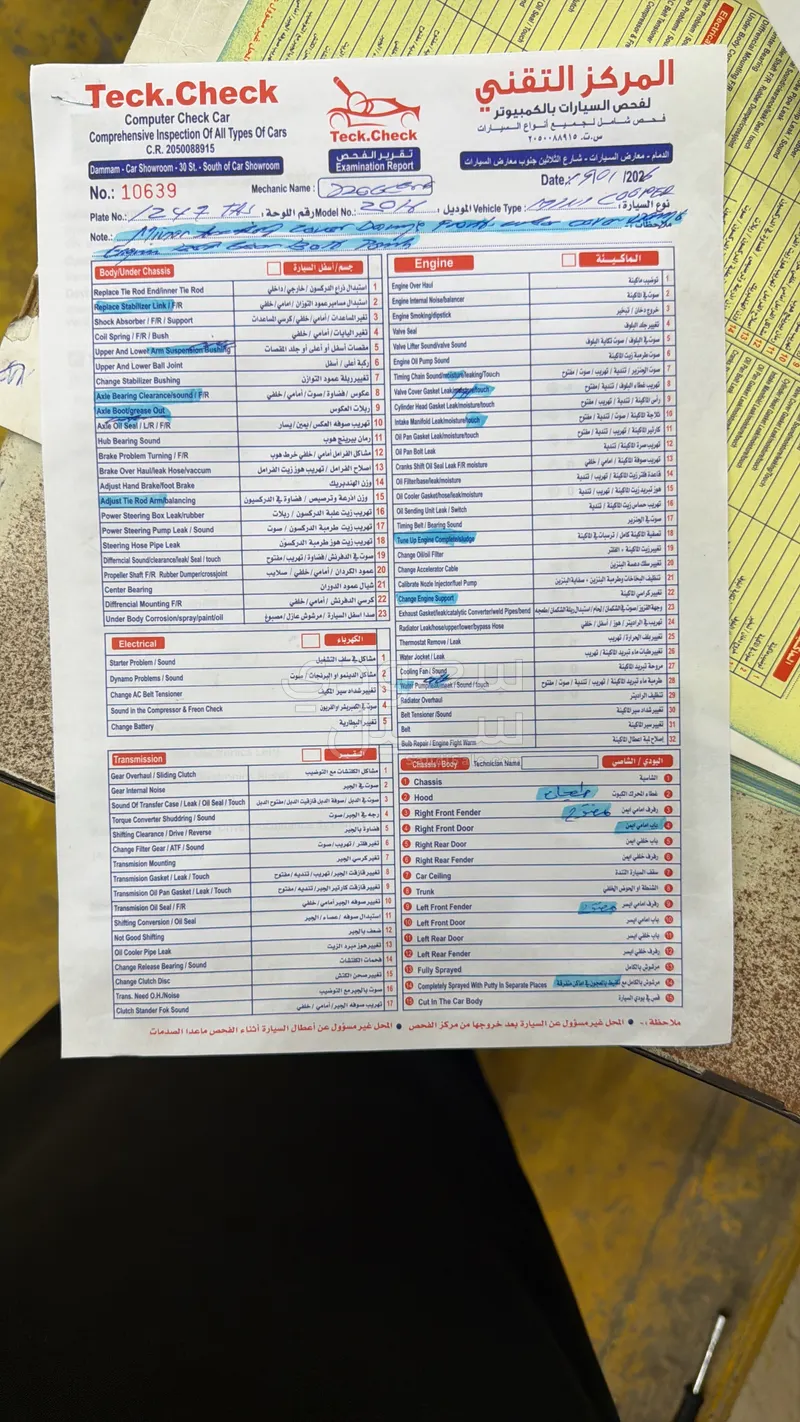 Teck.Check
Computer Check Car
Comprehensive Inspection Of All Types Of Cars
C.R. 2050088915
Dammam - Car Showroom - 30 St. - South of Car Showroom
Teck.Check
تقرير الفحص
Examination Report
المركز التقني
لفحص السيارات بالكمبيوتر
فحص شامل لجميع أنواع السيارات
س.ت. ٢٠٥٠٠٨٨٩١٥
الدمام - معارض السيارات - شارع الثلاثين جنوب معارض السيارات
No.: 10639
Mechanic Name :
Date: /01/202
Plate No.: 1247 رقم اللوحة: Model No.: 2016 الموديل: Vehicle Type : MINI COOPER نوع السيارة:
Note.: cover under cover ملاحظات:
Body/Under Chassis جسم/أسفل السيارة
Replace Tie Rod End/inner Tie Rod استبدال ذراع الدركسون/خارجي/داخلي 1
Replace Stabilizer Link / F/R استبدال مسامير عمود التوازن / امامي/خلفي 2
Shock Absorber / F/R / Support تغير المساعدات/أمامي/خلفي/كرسي المساعدات 3
Coil Spring / F/R / Bush تغير اليايات/أمامي/خلفي 4
Upper And Lower Arm Suspension Bushing مقصات أسفل أو أعلى أو جلد المقصات 5
Upper And Lower Ball Joint ركبة أعلى / أسفل 6
Change Stabilizer Bushing تغيير ربلة عمود التوازن 7
Axle Bearing Clearance/sound / F/R عكوس / فضاوة / صوت/أمامي/خلفي 8
Axle Boot/grease Out ربلات العكوس 9
Axle Oil Seal / L/R / F/R تهريب صوفه العكس/يمين/يسار 10
Hub Bearing Sound رمان بيرينج هوب 11
Brake Problem Turning / F/R مشاكل الفرامل أمامي/خلفي خرط هوب 12
Brake Over Haul/leak Hose/vaccum اصلاح الفرامل/تهريب هوز زيت الفرامل 13
Adjust Hand Brake/foot Brake وزن الهندبريك 14
Adjust Tie Rod Arm/balancing وزن اذرعة وترصيص / فضاوة في الدركسيون 15
Power Steering Box Leak/rubber تهريب زيت علبة الدركسون / ربلات 16
Power Steering Pump Leak / Sound تهريب زيت طرمبة الدركسون / صوت 17
Steering Hose Pipe Leak تهريب زيت هوز طرمبة الدركسون 18
Differncial Sound/clearance/leak/ Seal / touch صوت في الدفرنش/فضاوة/تهريب/مفتوح 19
Propeller Shaft F/R Rubber Dumper/crossjoint عمود الكردان / أمامي/خلفي / سلايب 20
Center Bearing شيال عمود الدوران 21
Diffrencial Mounting F/R كرسي الدفرنش / أمامي/خلفي 22
Under Body Corrosion/spray/paint/oil صدا أسفل السيارة / مرشوش عازل/مصبوغ 23
Electrical الكهرباء
Starter Problem / Sound مشاكل في سلف التشغيل 1
Dynamo Problems / Sound مشاكل الدينمو او البرنجات / صوت 2
Change AC Belt Tensioner تغيير شداد سير المكيف 3
Sound in the Compressor & Freon Check صوت في الكمبريشر او الفريون 4
Change Battery تغيير البطارية 5
Transmission القير
Gear Overhaul / Sliding Clutch مشاكل الكلتشات مع التوضيب 1
Gear Internal Noise صوت في الجير 2
Sound Of Transfer Case / Leak / Oil Seal / Touch صوت في الدبل/صوفة الدبل فازقيت الدبل/مفتوح الدبل 3
Torque Converter Shuddring / Sound رجه في الجير/صوت 4
Shifting Clearance / Drive / Reverse فضاوة بالجير 5
Change Filter Gear / ATF / Sound تغيير فلتر / تهريب/صوت 6
Transmission Mounting تغيير كرسي الجير 7
Transmission Gasket / Leak / Touch تغيير فازقت الجير/تهريب/تنديه/مفتوح 8
Transmission Oil Pan Gasket / Leak / Touch تغيير فازقت كارتير الجير/تنديه/مفتوح 9
Transmission Oil Seal / F/R تغيير صوفه الجير أمامي/خلفي 10
Shifting Conversion / Oil Seal استبدال صوفه / عصاء / الجير 11
Not Good Shifting ضعف بالجير 12
Oil Cooler Pipe Leak تغيير هوز مبرد الزيت 13
Change Release Bearing / Sound فحمات الكلتشات 14
Change Clutch Disc تغيير صحن الكلتش 15
Trans. Need O.H/Noise صوت بالجير مع التوضيب 16
Clutch Stander Fok Sound تهريب صوفه الجير/أمامي/خلفي 17
Engine الماكينة
Engine Over Haul توضيب ماكينة 1
Engine Internal Noise/balancer صوت في الماكينة 2
Engine Smoking/dipstick خروج دخان / تبخير 3
Valve Seal تغيير جلد البلوف 4
Valve Lifter Sound/valve Sound صوت في البلوف / صوت تكاية البلوف 5
Engine Oil Pump Sound صوت طرمبة زيت الماكينة 6
Timing Chain Sound/moisture/leaking/Touch صوت الجنزير / تندية / تهريب / صوت / مفتوح 7
Valve Cover Gasket Leak/moisture/touch تهريب غطاء البلوف / تندية / مفتوح 8
Cylinder Head Gasket Leak/moisture/touch رأس الماكينة / تندية / تهريب / مفتوح 9
Intake Manifold Leak/moisture/touch ثلاجة الماكينة / تندية / صوت / مفتوح 10
Oil Pan Gasket Leak/moisture/touch كارتير الماكينة / تهريب / تندية / مفتوح 11
Oil Pan Bolt Leak تهريب صرة الماكينة / تندية 12
Cranks Shift Oil Seal Leak F/R moisture تهريب صوفة الماكينة / امامي / خلفي 13
Oil Filter/base/leak/moisture قاعدة فلتر زيت الماكينة / تهريب / تندية 14
Oil Cooler Gasket/hose/leak/moisture هوز تبريد زيت الماكينة / تهريب / تندية 15
Oil Sending Unit Leak / Switch تهريب حساس زيت الماكينة / تندية 16
Timing Belt / Bearing Sound صوت في الجنزير 17
Tune Up Engine Complete/sludge تصفية الماكينة كامل / ترسبات في الماكينة 18
Change Oil/oil Filter تغيير زيت الماكينة - الفلتر 19
Change Accelerator Cable تغيير سلك دعسة البنزين 20
Calibrate Nozle Injector/fuel Pump تنظيف البخاخات وطرمبة البنزين - صفاية البنزين 21
Change Engine Support تغيير كراسي الماكينة 22
Exhaust Gasket/leak/catalytic Converter/weld Pipes/bend 23
Radiator Leak/hose/upper/lower/bypass Hose تهريب في الراديتر / هوز / أسفل / خلفي 24
Thermostat Remove / Leak تغيير بلف الحرارة / تهريب 25
Water Jocket / Leak تغيير طبات ماء تبريد الماكينة / تهريب 26
Cooling Fan / Sound مروحة تبريد الماكينة 27
Water Pump/leak / Sound / touch طرمبة ماء تبريد الماكينة / تهريب / تندية / صوت / مفتوح 28
Radiator Overhaul تنظيف الراديتر 29
Belt Tensioner /Sound تغيير شداد سير الماكينة 30
Belt تغيير سير الماكينة 31
Bulb Repair / Engine Fight Warm إصلاح لمبة اعطال الماكينة 32
Chassis / Body Technician Name البودي / الشاصي
1 Chassis الشاصية 1
2 Hood غطاء المحرك الكبوت 2
3 Right Front Fender رفرف امامي ايمن 3
4 Right Front Door باب امامي ايمن 4
5 Right Rear Door باب خلفي ايمن 5
6 Right Rear Fender رفرف خلفي ايمن 6
7 Car Ceiling سقف السيارة التندة 7
8 Trunk الشنطة او الحوض الخلفي 8
9 Left Front Fender رفرف امامي ايسر 9
10 Left Front Door باب امامي ايسر 10
11 Left Rear Door باب خلفي ايسر 11
12 Left Rear Fender رفرف خلفي ايسر 12
13 Fully Sprayed مرشوش بالكامل 13
14 Completely Sprayed With Putty In Separate Places مرشوش بالكامل مع تلقيط بالمعجون في اماكن متفرقة 14
15 Cut In The Car Body قص في بودي السيارة 15
ملاحظة :- ● المحل غير مسؤول عن السيارة بعد خروجها من مركز الفحص ● المحل غير مسؤول عن أعطال السيارة أثناء الفحص ماعدا الصدمات